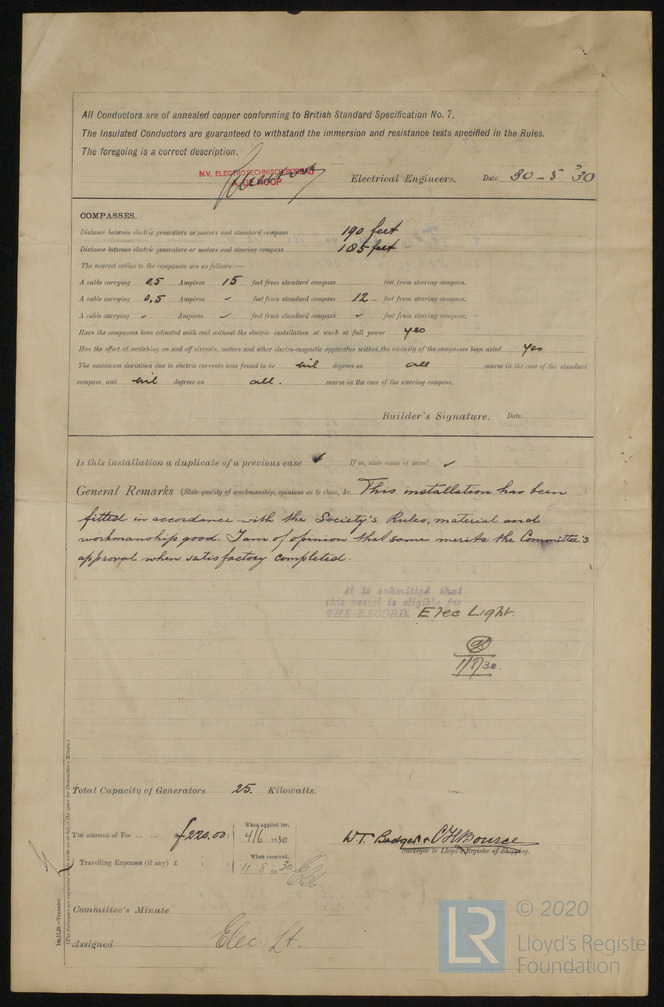 All Conductors are of annealed copper conforming to British Standard Specification No. 7.
The Insulated Conductors are guaranteed to withstand the immersion and resistance tests specified in the Rules.
The foregoing is a correct description.
N.V. ELECTROTECHNISCH BUREAU
DE HOOP
Electrical Engineers. Date 30-5 30
COMPASSES.
Distance between electric generators or motors and standard compass 190 feet
Distance between electric generators or motors and steering compass 185 feet
The nearest cables to the compasses are as follows:—
A cable carrying 0,5 Ampères 15 feet from standard compass feet from steering compass.
A cable carrying 0,5 Ampères feet from standard compass 12 feet from steering compass.
A cable carrying Ampères feet from standard compass feet from steering compass.
Have the compasses been adjusted with and without the electric installation at work at full power yes
Has the effect of switching on and off circuits, motors and other electro-magnetic apparatus within the vicinity of the compasses been noted yes
The maximum deviation due to electric currents was found to be nil degrees on all course in the case of the standard
compass, and nil degrees on all. course in the case of the steering compass.
Builder's Signature. Date
Is this installation a duplicate of a previous case If so, state name of vessel
General Remarks (State quality of workmanship, opinions as to class, &c. This installation has been
fitted in accordance with the Society's Rules, material and
workmanship good. I am of opinion that same merits the Committee's
approval when satisfactory completed.
It is submitted that
this vessel is eligible for
THE RECORD. Elec Light.
1/7/30.
Total Capacity of Generators 25. Kilowatts.
When applied for,
The amount of Fee ... ... £220.00: 4/6 1930
W.T. Badger & C H Bource
Surveyor to Lloyd's Register of Shipping.
When received,
Travelling Expenses (if any) £ : : 11.8.1930
Committee's Minute
Assigned Elec. Lt.
1m.11.29.—Transfer.
(The Surveyors are requested not to write on or below the space for Committee's Minute.)
LR © 2020
Lloyd's Registe
Foundation